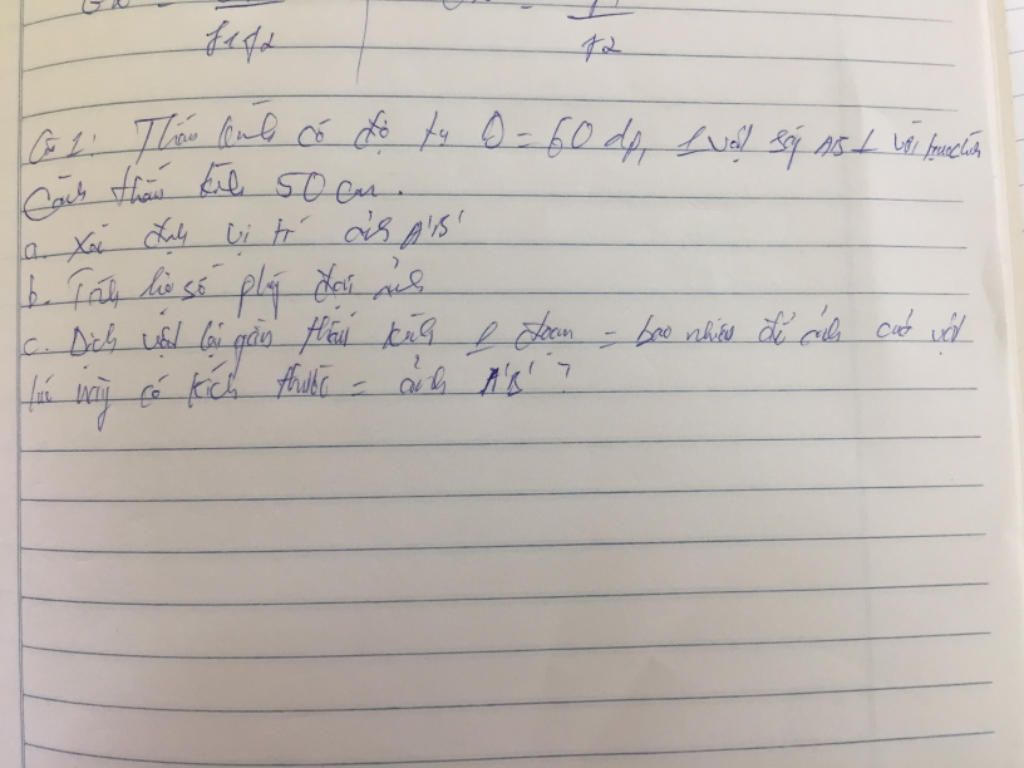 f1f2 f2
Câu 1: Thấu kính có độ tụ D = 60 dp, 1 vật sáng AB ⊥ với trục chính
Cách thấu kính 50 cm.
a. Xác định vị trí ảnh A'B'
b. Tính hệ số phóng đại ảnh
c. Dịch vật lại gần thấu kính 1 đoạn = bao nhiêu để ảnh của vật
lúc này có kích thước = ảnh A'B' ?